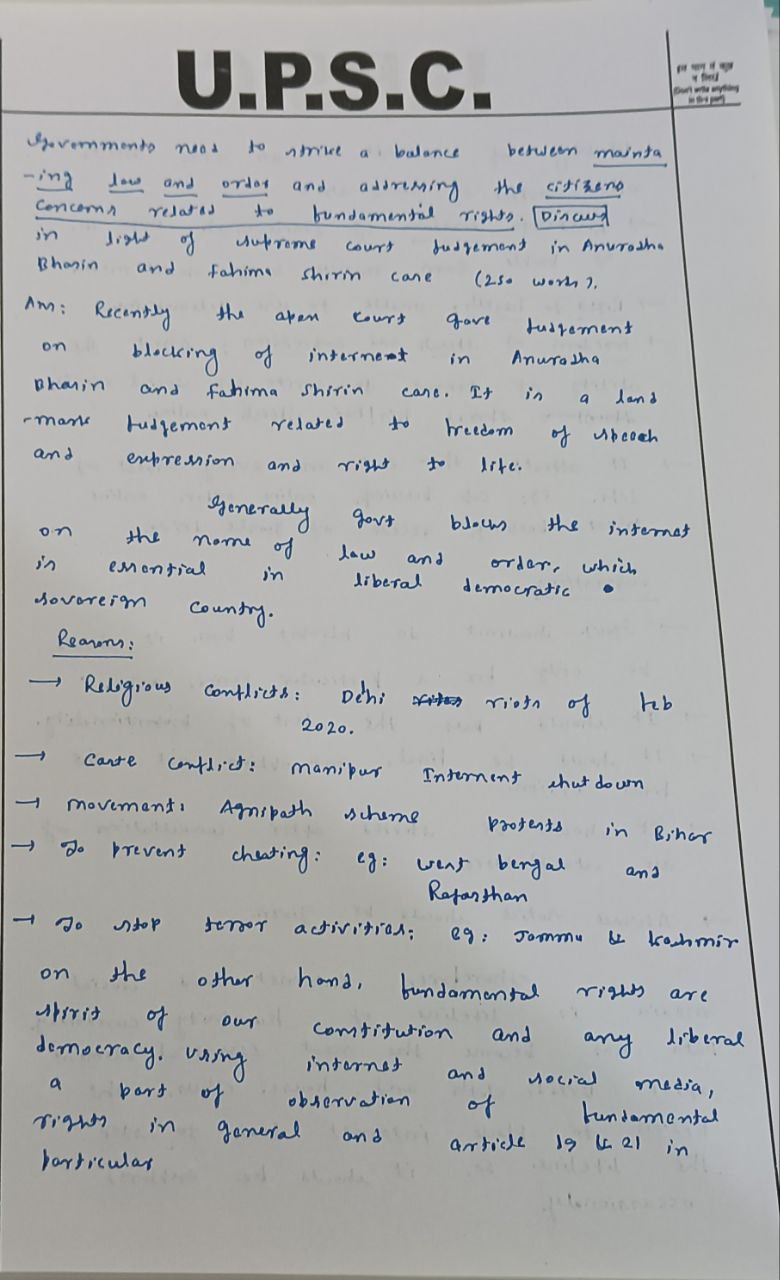 U.P.S.C.
इस भाग में कुछ
न लिखें
(Don't write anything
in this part)
Governments need to strike a balance between mainta
-ing law and order and addressing the citizens
concerns related to fundamental rights. Discuss
in light of supreme court Judgement in Anuradha
Bhasin and Fahima Shirin case (250 words).
Ans: Recently the apex court gave Judgement
on blocking of internet in Anuradha
Bhasin and Fahima Shirin case. It is a land
-mark Judgement related to freedom of speech
and expression and right to life.
Generally govt blocks the internet
on the name of law and order, which
is essential in liberal democratic
sovereign country.
Reasons:
→ Religious conflicts: Delhi riots of feb
2020.
→ Caste conflict: Manipur Internent shut down
→ Movement: Agnipath scheme protests in Bihar
→ To prevent cheating: eg: west bengal and
Rajasthan
→ To stop terror activities: eg: Jammu & Kashmir
on the other hand, fundamental rights are
spirit of our constitution and any liberal
democracy. using internet and social media,
a part of observation of fundamental
rights in general and article 19 & 21 in
particular